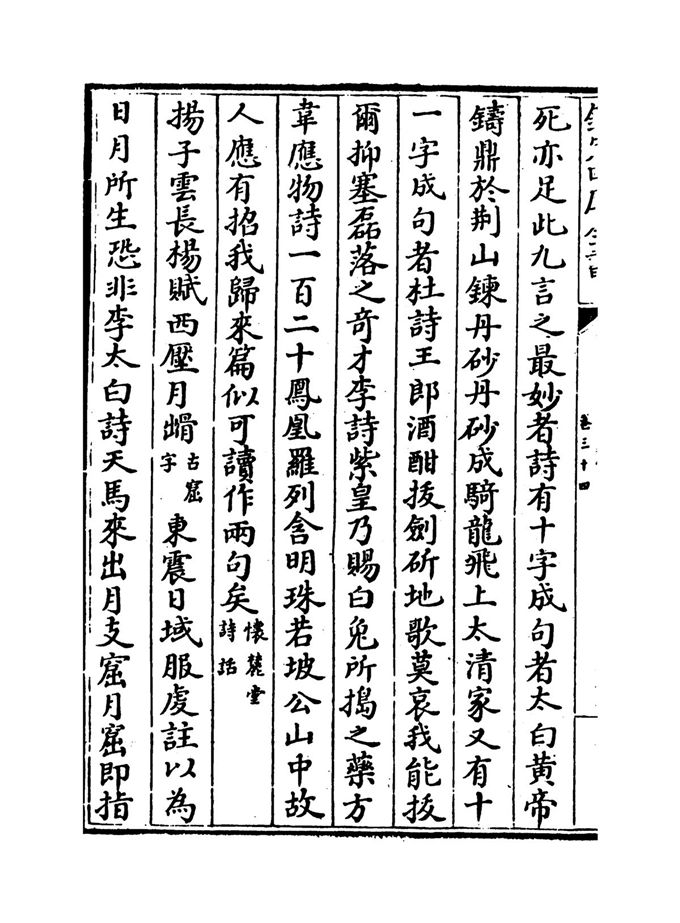 死亦足此九言之最妙者詩有十字成句者太白黄帝
鑄鼎於荆山鍊丹砂丹砂成騎龍飛上太清家又有十
一字成句者杜詩王郎酒酣拔劍斫地歌莫哀我能拔
爾抑塞磊落之奇才李詩紫皇乃賜白兔所搗之藥方
韋應物詩一百二十鳳凰羅列含明珠若坡公山中故
人應有招我歸來篇似可讀作兩句矣懷麓堂詩話
揚子雲長楊賦西壓月𡿺古窟字東震日域服虔註以為
日月所生恐非李太白詩天馬來出月支窟月窟即指
卷三十四